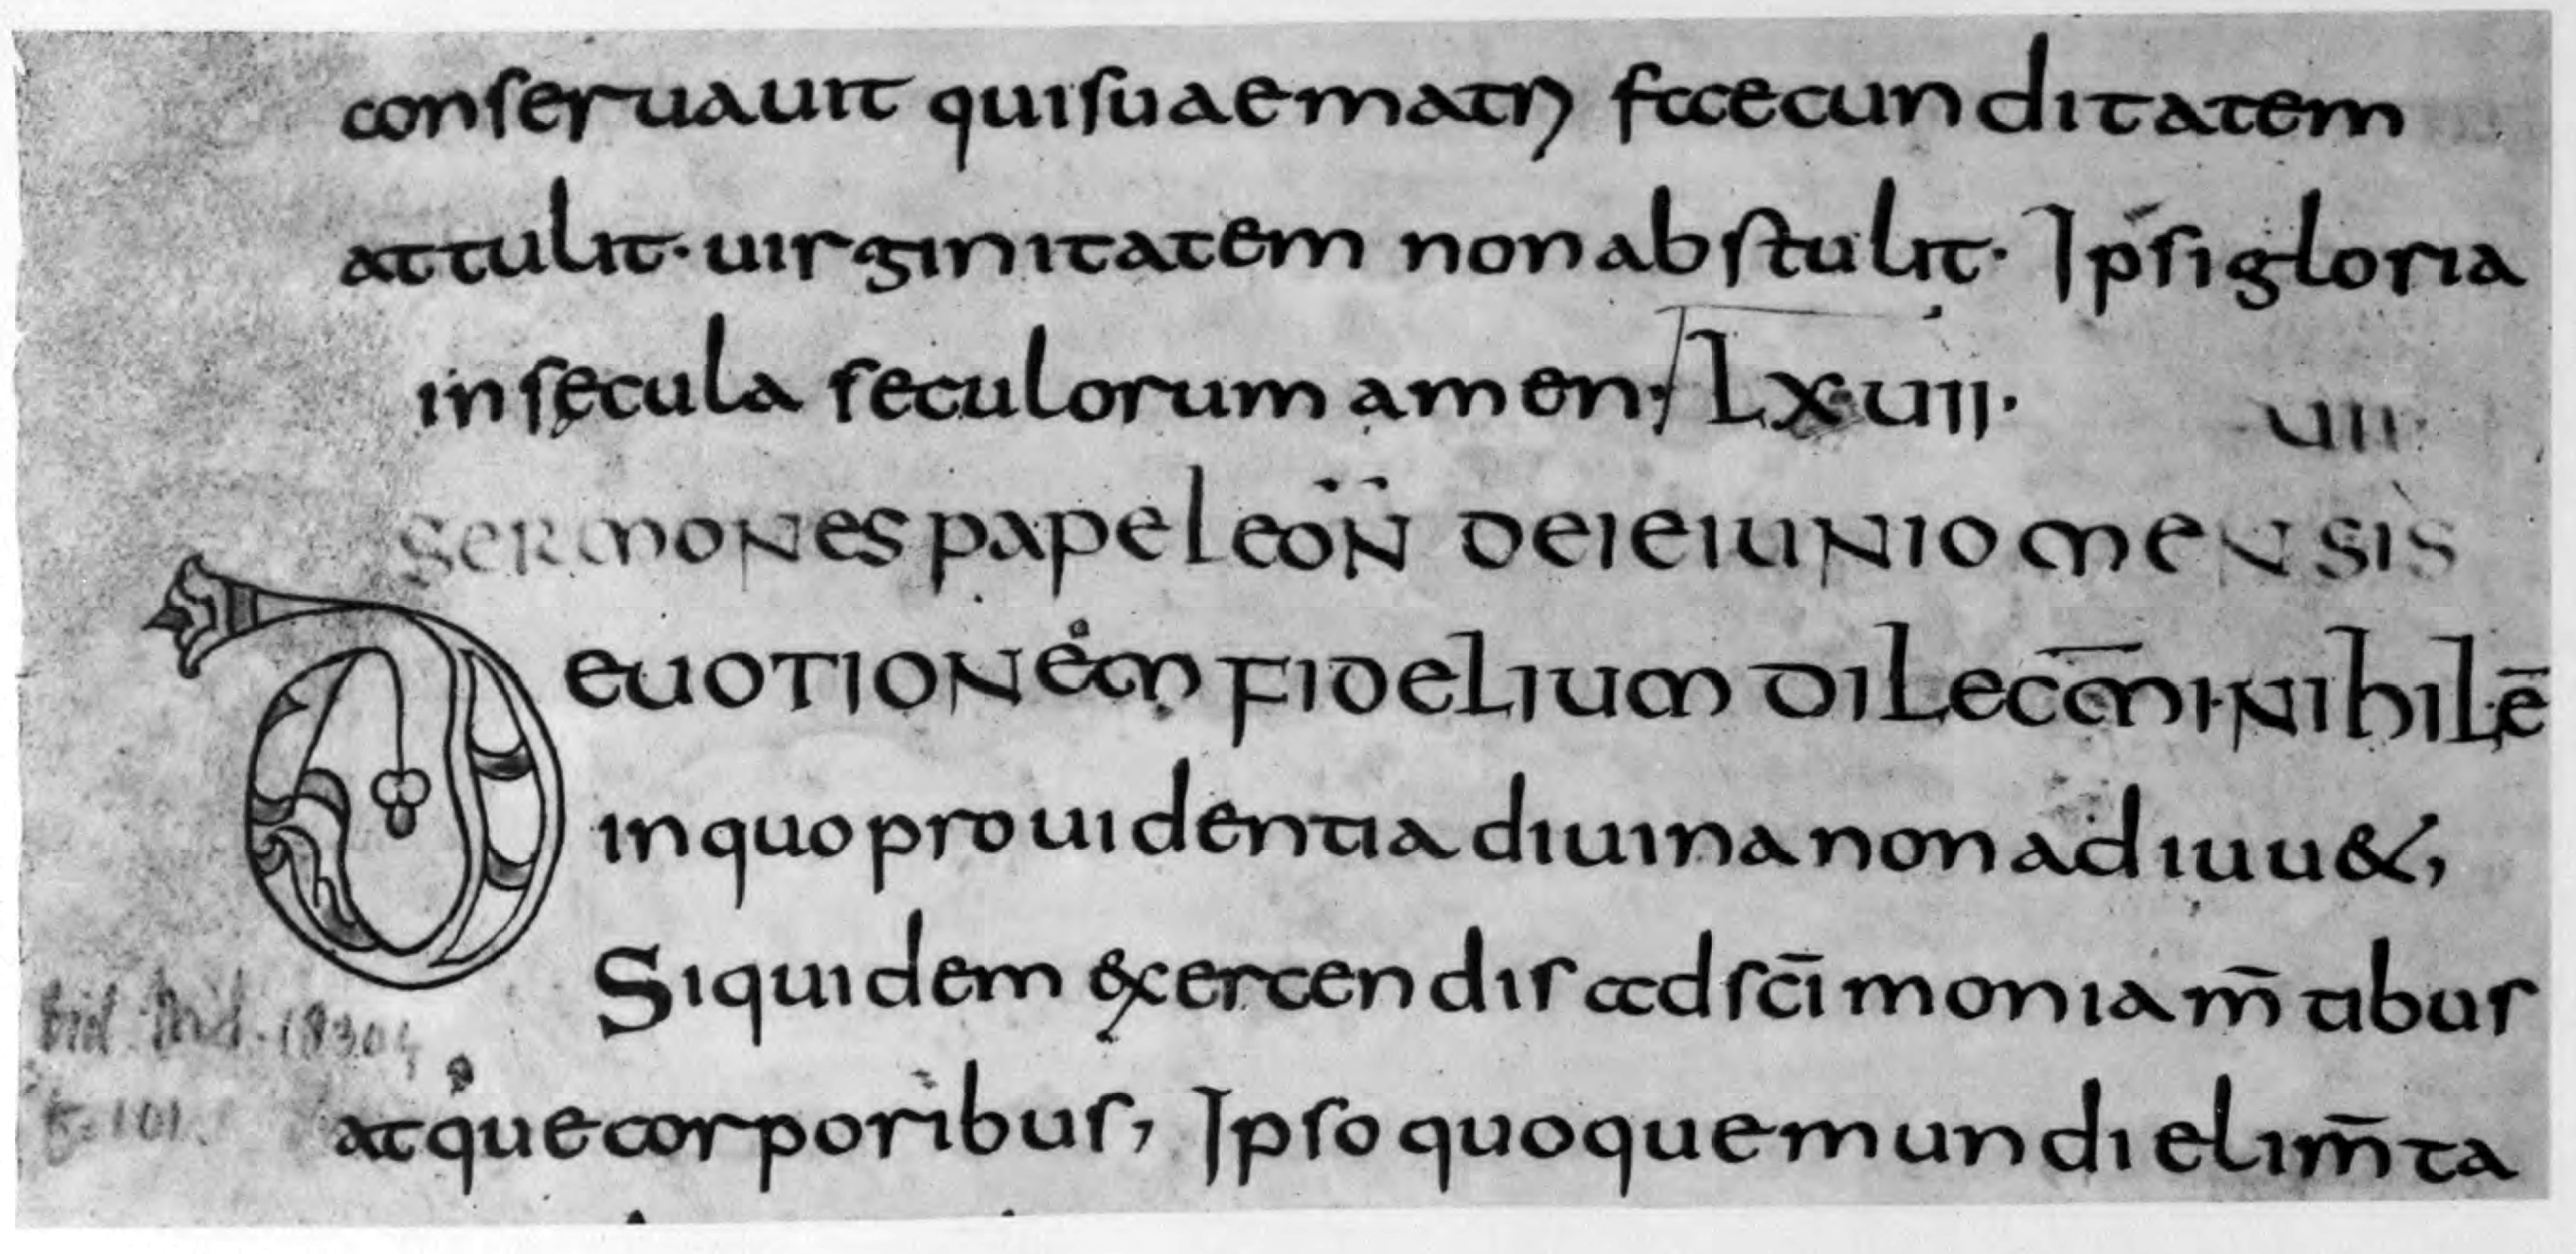 conseruauit qui suae matri foecunditatem
attulit· uirginitatem non abstulit· Ipsi gloria
in sęcula seculorum amen· LXUII·
UII·
SERMONES PAPE LEON̄ DE IEIUNIO MENSIS
DEUOTIONEM FIDELIUM DILECT̄MI· NIHIL Ē
in quo prouidentia diuina non adiuu&,
Siquidem &xercendis ad sc̄imoniam m̄tibus
atque corporibus, Ipso quoque mundi elim̄ta